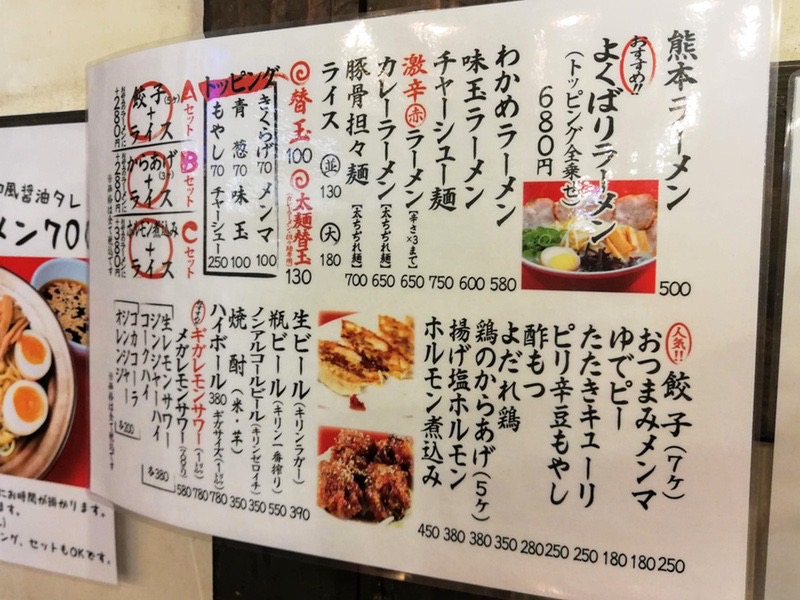 熊本ラーメン 500
おすすめ!!
よくばりラーメン
(トッピング全乗せ)
680円
わかめラーメン 580
味玉ラーメン 600
チャーシュー麺 750
激辛赤ラーメン(辛さ×3まで) 650
カレーラーメン【太ちぢれ麺】 650
豚骨担々麺【太ちぢれ麺】 700
ライス 並 130 大 180
替玉 100 太麺替玉 130
トッピング
きくらげ 70 メンマ 100
青葱 70 味玉 100
もやし 70 チャーシュー 250
Aセット
餃子(5ヶ)+ライス
+280円
Bセット
からあげ(3ヶ)+ライス
+280円
Cセット
ホルモン煮込み+ライス
+380円
人気!! 餃子(7ヶ) 250
おつまみメンマ 180
ゆでピー 180
たたきキューリ 250
ピリ辛豆もやし 250
酢もつ 280
よだれ鶏 350
鶏のからあげ(5ヶ) 380
揚げ塩ホルモン 380
ホルモン煮込み 450
生ビール(キリンラガー) 390
瓶ビール(キリン一番搾り) 550
ノンアルコールビール(キリンゼロイチ) 350
焼酎(米・芋) 350
ハイボール 380 ギガサイズ(1ℓ) 780
ギガレモンサワー(1ℓ) 780
メガレモンサワー 580
生レモンサワー
ジンジャーハイ
コークハイ
各380
コカコーラ
オレンジジュース
各200
風醤油タレ
メン70
にお時間が掛かります。
ます。
ング、セットもOKです。